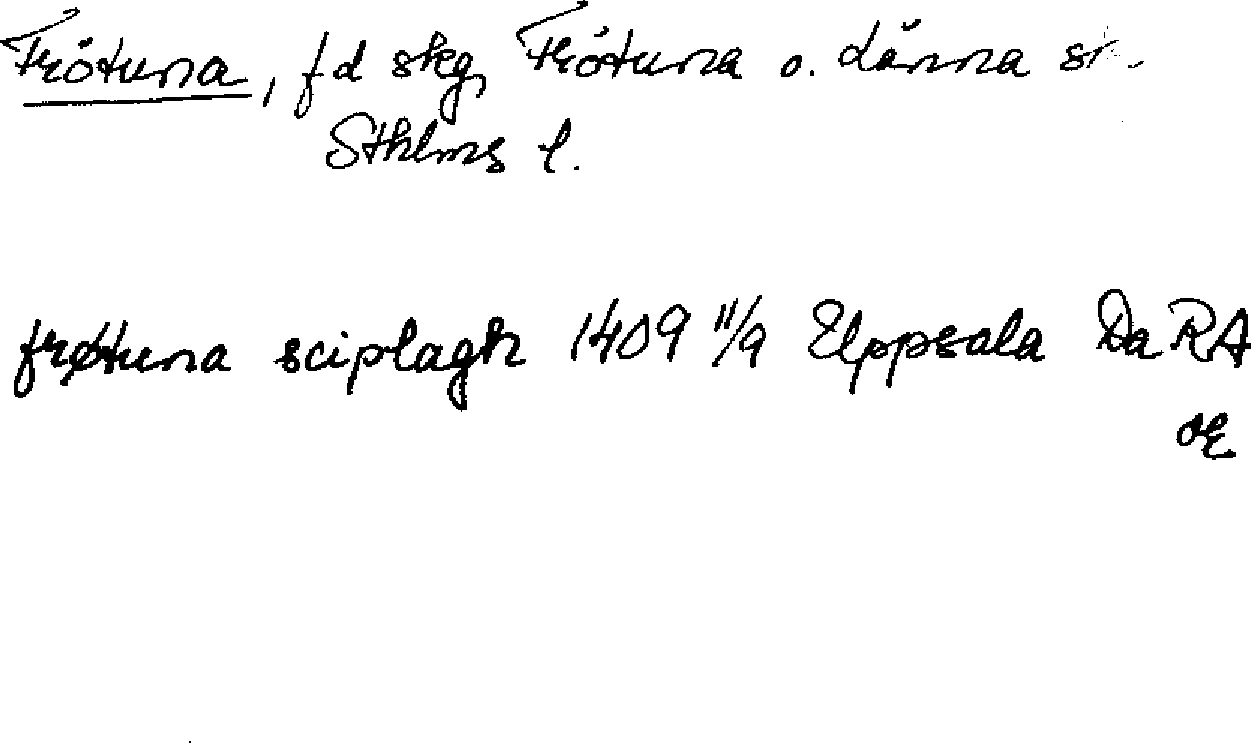 Frötuna, fd skg, Frötuna o. Länna sn.
Sthlms l.
frøtuna sciplagh 1409 11/9 Uppsala Da RA
or